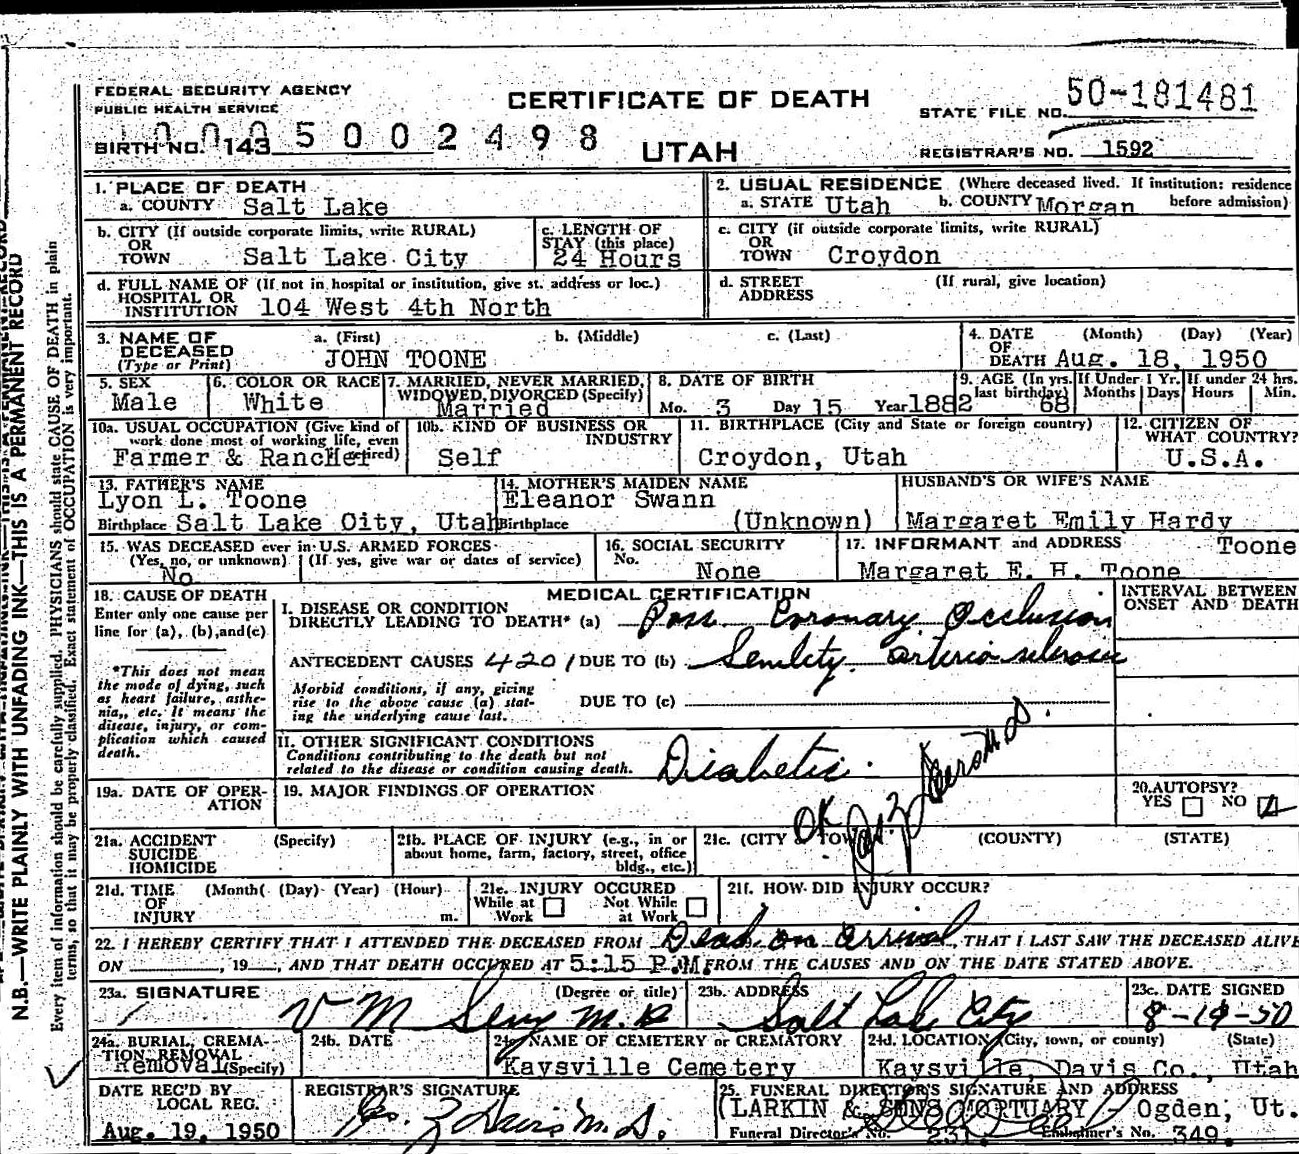 FEDERAL SECURITY AGENCY
PUBLIC HEALTH SERVICE
CERTIFICATE OF DEATH
STATE FILE NO. 50-181481
BIRTH NO. 143 5 0 0 2 4 9 8
UTAH
REGISTRAR'S NO. 1592
1. PLACE OF DEATH
a. COUNTY Salt Lake
2. USUAL RESIDENCE (Where deceased lived. If institution: residence before admission)
a. STATE Utah b. COUNTY Morgan
b. CITY (If outside corporate limits, write RURAL) OR TOWN Salt Lake City
c. LENGTH OF STAY (this place) 24 Hours
c. CITY (if outside corporate limits, write RURAL) OR TOWN Croydon
d. FULL NAME OF (If not in hospital or institution, give st. address or loc.) HOSPITAL OR INSTITUTION 104 West 4th North
d. STREET ADDRESS (If rural, give location)
3. NAME OF DECEASED (Type or Print) a. (First) b. (Middle) c. (Last)
JOHN TOONE
4. DATE OF DEATH (Month) (Day) (Year) Aug. 18, 1950
5. SEX Male
6. COLOR OR RACE White
7. MARRIED, NEVER MARRIED, WIDOWED, DIVORCED (Specify) Married
8. DATE OF BIRTH Mo. 3 Day 15 Year 1882
9. AGE (In yrs. last birthday) 68
If Under 1 Yr. Months Days
If under 24 hrs. Hours Min.
10a. USUAL OCCUPATION (Give kind of work done most of working life, even retired) Farmer & Rancher
10b. KIND OF BUSINESS OR INDUSTRY Self
11. BIRTHPLACE (City and State or foreign country) Croydon, Utah
12. CITIZEN OF WHAT COUNTRY? U.S.A.
13. FATHER'S NAME Lyon L. Toone
Birthplace Salt Lake City, Utah
14. MOTHER'S MAIDEN NAME Eleanor Swann
Birthplace (Unknown)
HUSBAND'S OR WIFE'S NAME Margaret Emily Hardy Toone
15. WAS DECEASED ever in U.S. ARMED FORCES
(Yes, no, or unknown) (If yes, give war or dates of service)
No
16. SOCIAL SECURITY No. None
17. INFORMANT and ADDRESS
Margaret E. H. Toone
18. CAUSE OF DEATH
Enter only one cause per line for (a), (b), and (c)
MEDICAL CERTIFICATION
INTERVAL BETWEEN ONSET AND DEATH
I. DISEASE OR CONDITION DIRECTLY LEADING TO DEATH* (a) Poss. Coronary Occlusion
ANTECEDENT CAUSES 4201 DUE TO (b) Senility. arterio sclerosis
*This does not mean the mode of dying, such as heart failure, asthenia, etc. It means the disease, injury, or complication which caused death.
Morbid conditions, if any, giving rise to the above cause (a) stating the underlying cause last.
DUE TO (c)
II. OTHER SIGNIFICANT CONDITIONS
Conditions contributing to the death but not related to the disease or condition causing death.
Diabetic.
19a. DATE OF OPERATION
19. MAJOR FINDINGS OF OPERATION
20. AUTOPSY? YES NO
OK
21a. ACCIDENT SUICIDE HOMICIDE (Specify)
21b. PLACE OF INJURY (e.g., in or about home, farm, factory, street, office bldg., etc.)
21c. (CITY & TOWN) (COUNTY) (STATE)
21d. TIME OF INJURY (Month) (Day) (Year) (Hour) m.
21e. INJURY OCCURED While at Work Not While at Work
21f. HOW DID INJURY OCCUR?
22. I HEREBY CERTIFY THAT I ATTENDED THE DECEASED FROM Dead on arrival, THAT I LAST SAW THE DECEASED ALIVE
ON , 19 , AND THAT DEATH OCCURED AT 5:15 P.M. FROM THE CAUSES AND ON THE DATE STATED ABOVE.
23a. SIGNATURE (Degree or title)
V M Sevy M.D.
23b. ADDRESS Salt Lake City
23c. DATE SIGNED 8-19-50
24a. BURIAL, CREMATION, REMOVAL (Specify) Removal
24b. DATE
24c. NAME OF CEMETERY or CREMATORY Kaysville Cemetery
24d. LOCATION (City, town, or county) (State)
Kaysville, Davis Co., Utah
DATE REC'D BY LOCAL REG.
Aug. 19, 1950
REGISTRAR'S SIGNATURE
25. FUNERAL DIRECTOR'S SIGNATURE AND ADDRESS
(LARKIN & SONS MORTUARY - Ogden, Ut.
Funeral Director's No. 231. Embalmer's No. 349.
N.B.—WRITE PLAINLY WITH UNFADING INK—THIS IS A PERMANENT RECORD
Every item of information should be carefully supplied. PHYSICIANS should state CAUSE OF DEATH in plain
terms, so that it may be properly classified. Exact statement of OCCUPATION is very important.